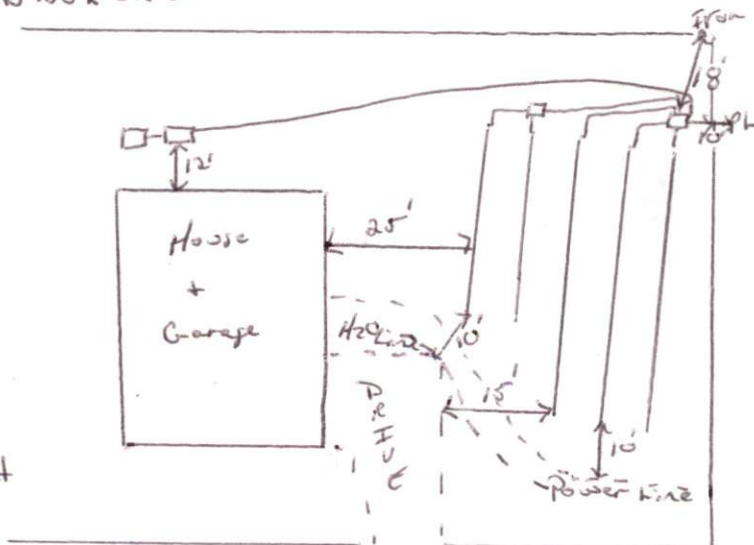 Iron
18'
10'
PL
12'
House
+
Garage
25'
H2O Line
10'
DRIVE
15'
10'
Power Line